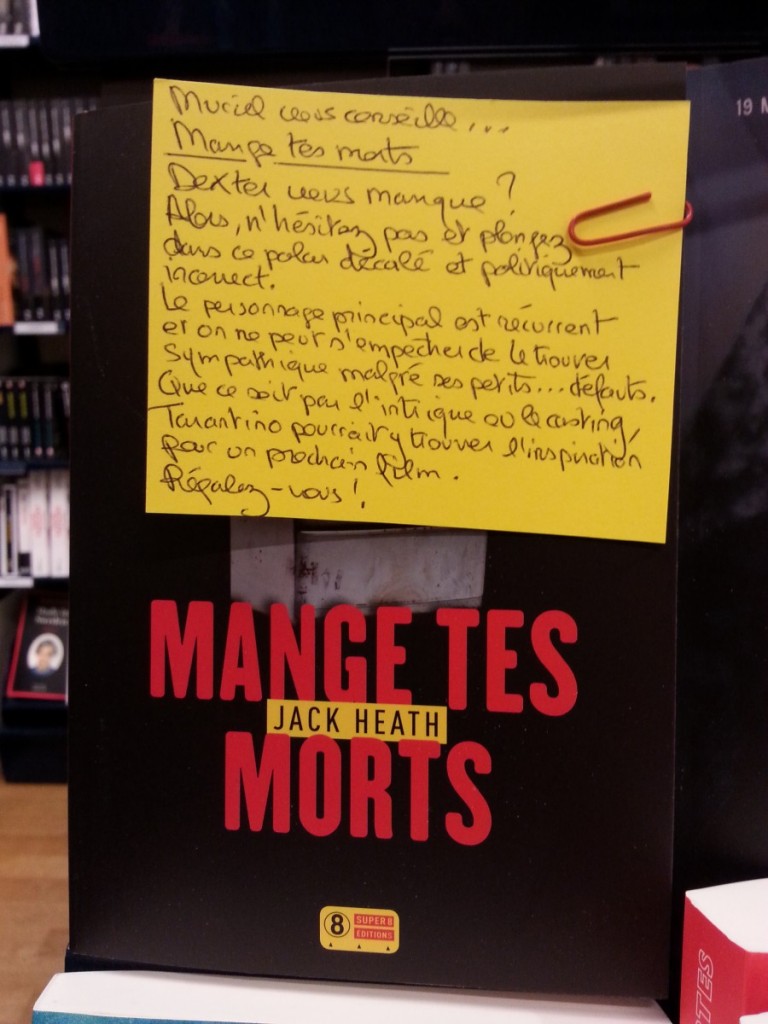 Muriel vous conseille...
Mange tes morts
Dexter vous manque ?
Alors, n'hésitez pas et plongez
dans ce polar décalé et politiquement
incorrect.
Le personnage principal est récurrent
et on ne peut s'empêcher de le trouver
sympathique malgré ses petits... défauts.
Que ce soit par l'intrigue ou le casting,
Tarantino pourrait y trouver l'inspiration
pour un prochain film.
Régalez-vous !
19 M
MANGE TES
JACK HEATH
MORTS
8
SUPER 8
ÉDITIONS
TES